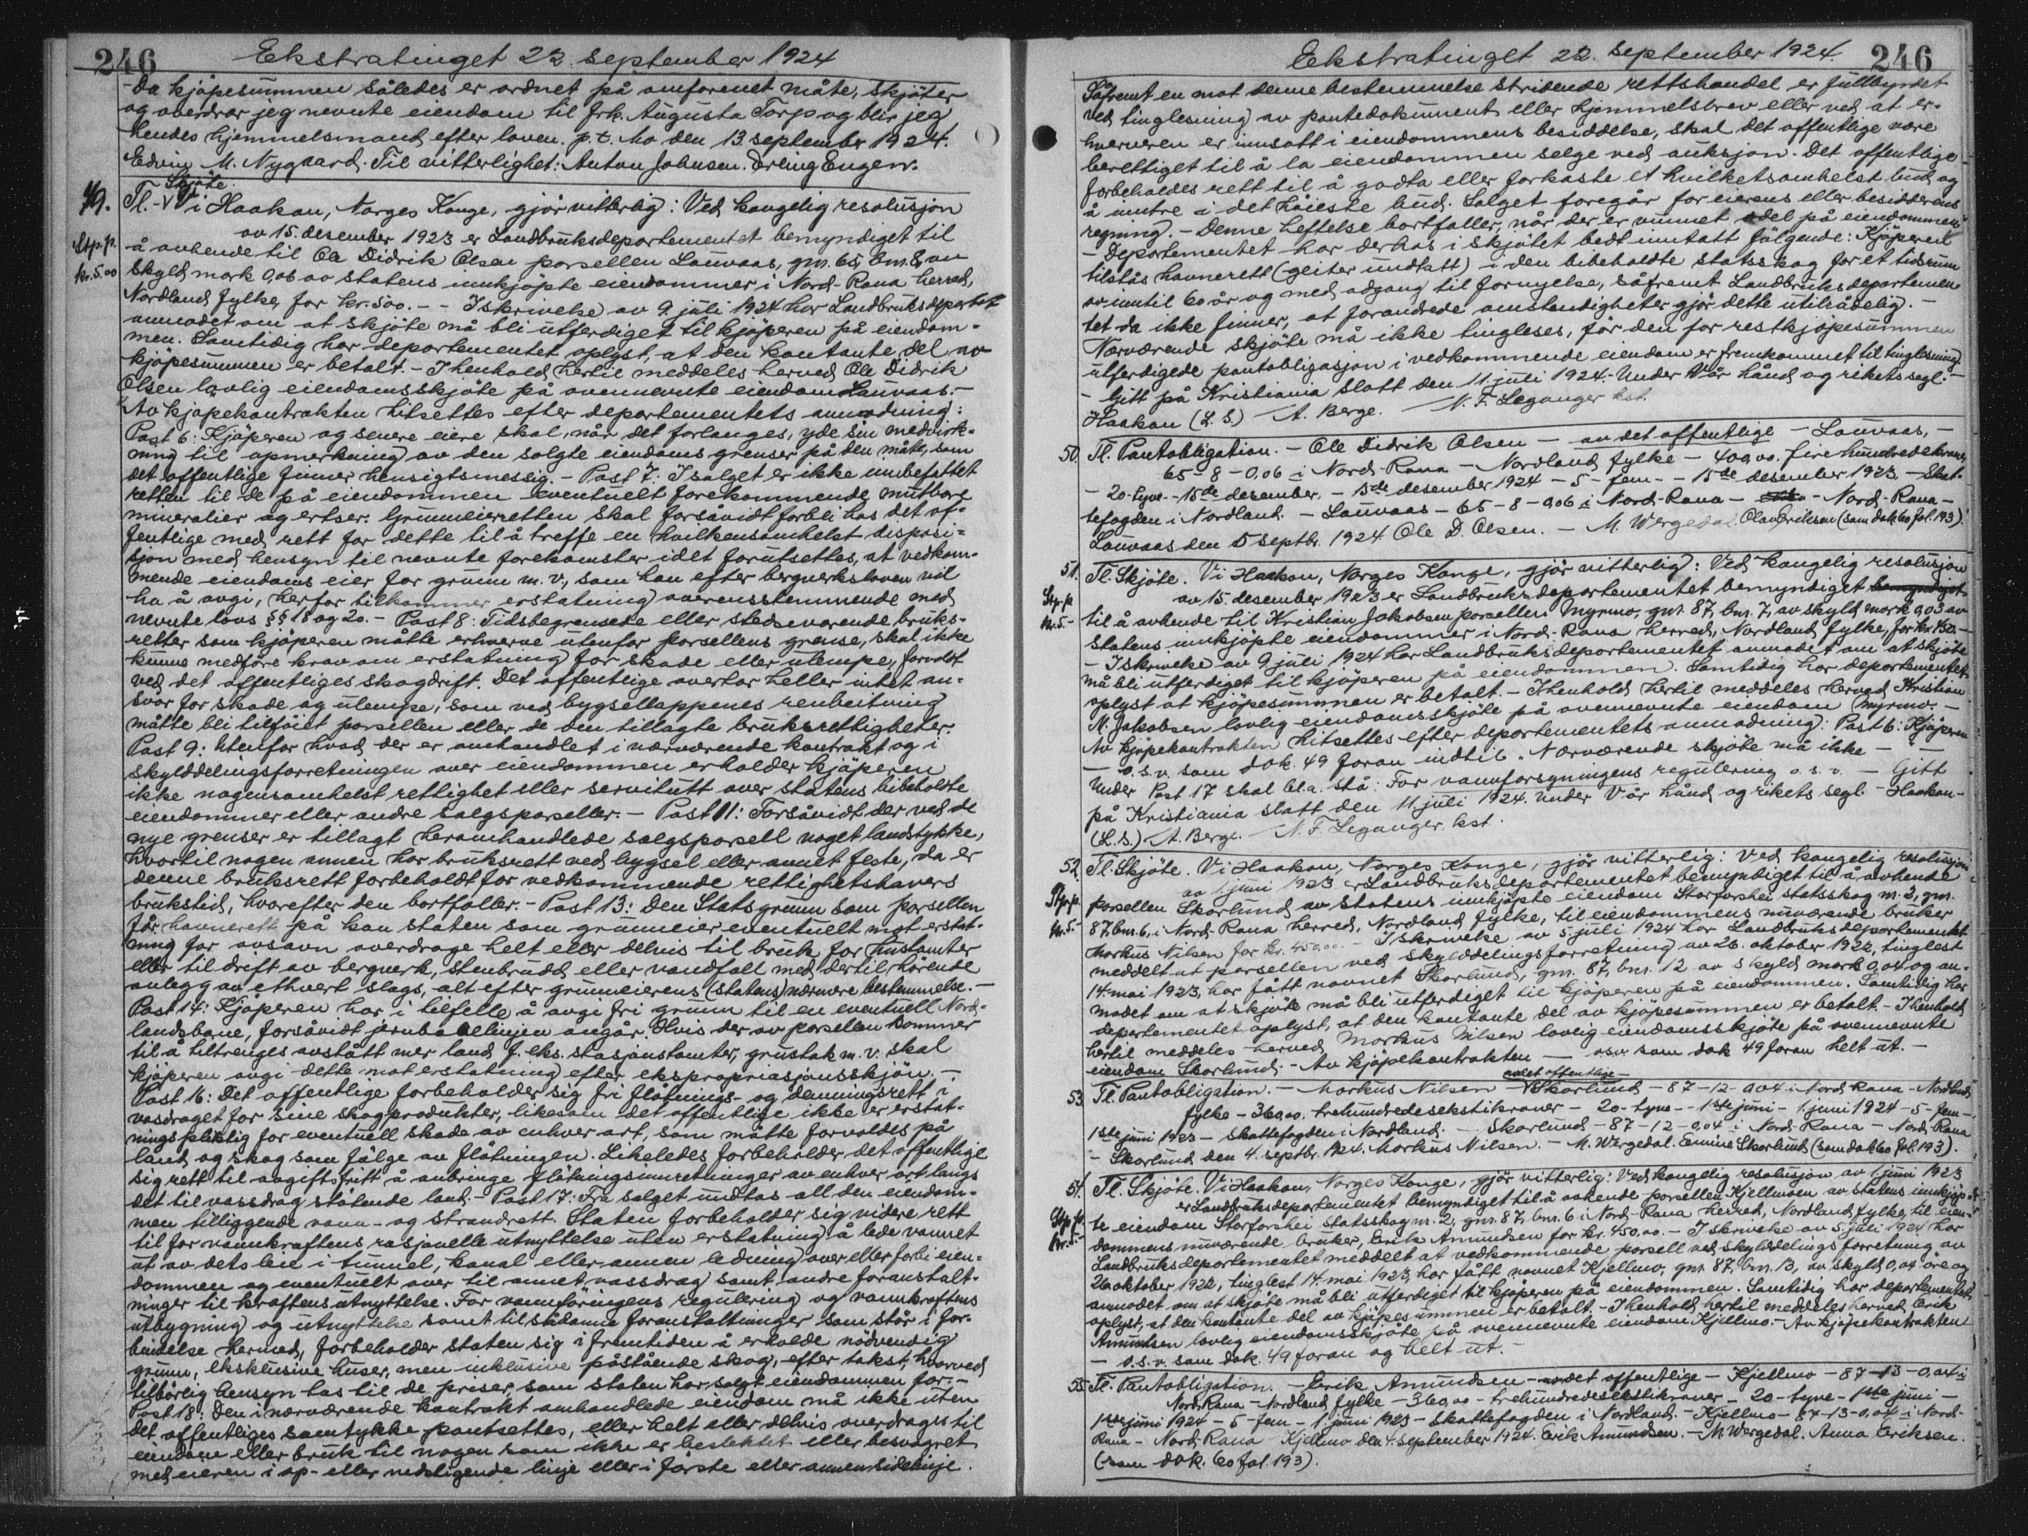 246
Ekstratinget 22. september 1924
Da kjöpesummen således er ordnet på omforenet måte, skjöter
og overdrar jeg nevnte eiendom til frk. Augusta Torp og blir jeg
hendes hjemmelsmand efter loven. p.t. Mo den 13. september 1924.
Edvin M. Nygaard. Til vitterlighet: Anton Johnsen. Erling Engen.
49. Tl. Skjöte. Vi Haakon, Norges Konge, gjör vitterlig: Ved kongelig resolusjon
Stp. p. kr. 5.00
av 15. desember 1923 er Landbruksdepartementet bemyndiget til
å avhende til Ole Didrik Olsen parsellen Lauvaas, gnr. 65, bnr. 8 av
skyld mark 0,06 av statens innkjöpte eiendommer i Nord-Rana herred,
Nordland fylke, for kr. 500. - - I skrivelse av 9. juli 1924 har Landbruksdepartet
anmodet om at skjöte må bli utferdiget til kjöperen på eiendom-
men. Samtidig har departementet oplyst, at den kontante del av
kjöpesummen er betalt. - I henhold hertil meddeles herved Ole Didrik
Olsen lovlig eiendomsskjöte på ovennevnte eiendom Lauvaas. -
Av kjöpekontrakten hitsettes efter departementets anmodning:
Post 6: Kjöperen og senere eiere skal, når det forlanges, yde sin medvirk-
ning til opmerkning av den solgte eiendoms grenser på den måte, som
det offentlige finner hensigtsmessig. - Post 7: I salget er ikke innbefattet
retten til de på eiendommen eventuelt forekommende mutbare
mineralier og ertser. Grunneierretten skal forsåvidt forbli hos det of-
fentlige med rett for dette til å treffe en hvilkensomhelst disposi-
sjon med hensyn til nevnte forekomster idet forutsettes, at vedkom-
mende eiendoms eier for grunn m.v., som han efter bergverksloven vil
ha å avgi, herfor tilkommer erstatning overensstemmende med
nevnte lovs §§ 18 og 20. - Post 8: Tidsbegrensede eller stedsevarende bruks-
retter som kjöperen måtte erhverve utenfor parsellens grense, skal ikke
kunne medföre krav om erstatning for skade eller ulempe, forvoldt
ved det offentliges skogdrift. Det offentlige overtar heller intet an-
svar for skade og ulempe, som ved bygsellappenes renbeitning
måtte bli tilföiet parsellen eller de den tillagte bruksrettigheter.
Post 9: Utenfor hvad der er omhandlet i nærværende kontrakt og i
skylddelingsforretningen over eiendommen erholder kjöperen
ikke nogensomhelst rettighet eller servitutt over statens bibeholdte
eiendommer eller andre salgsparseller. - Post 11: Forsåvidt der ved de
nye grenser er tillagt heromhandlede salgsparsell noget landstykke,
hvortil nogen annen har bruksrett ved bygsel eller annet feste, da er
denne bruksrett forbeholdt for vedkommende rettighetshavers
brukstid, hvorefter den bortfaller. - Post 13: Den Statsgrunn som parsellen
får havnerett på kan staten som grunneier eventuelt mot erstat-
ning for avsavn overdrage helt eller delvis til bruk for hustomter
eller til drift av bergverk, stenbrudd eller vandfall med dertil hörende
anlegg av ethvert slags, alt efter grunneierens (statens) nærmere bestemmelse. -
Post 14: Kjöperen har i tilfelle å avgi fri grunn til en eventuell Nord-
landsbane, forsåvidt jernbanelinjen angår. Hvis der av parsellen kommer
til å tiltrenges avstått mer land f. eks. stasjonstomter, grustak m.v. skal
kjöperen avgi dette mot erstatning efter ekspropriasjonsskjön. -
Post 16: Det offentlige forbeholder sig fri flötnings- og damningsrett i
vasdraget for sine skogprodukter, likesom det offentlige ikke er erstat-
ningspliktig for eventuell skade av enhver art, som måtte forvoldes på
land og skog som fölge av flötningen. Likeledes forbeholder det offentlige
sig rett til avgiftsfritt å anbringe flötningsinnretninger av enhver art langs
det til vassdrag stötende land. - Post 17: Fra salget undtas all den eiendom-
men tilliggende vann- og strandrett. Staten forbeholder sig videre rett
til for vannkraftens rasjonelle utnyttelse uten erstatning å lede vannet
ut av dets leie i tunnel, kanal eller annen ledning over eller forbi eien-
dommen og eventuelt over til annet vassdrag samt andre foranstalt-
ninger til kraftens utnyttelse. For vannföringens regulering og vannkraftens
utbygning og utnyttelse samt til sådanne foranstaltninger som står i for-
bindelse hermed, forbeholder staten sig i fremtiden å erholde nödvendig
grunn, eksklusive huser, men inklusive påstående skog, efter takst, hvorved
tilbörlig hensyn tas til de priser, som staten har solgt eiendommen for. -
Post 18: Den i nærværende kontrakt omhandlede eiendom må ikke uten
det offentliges samtykke pantsettes, eller helt eller delvis overdrages til
eiendom eller bruk til nogen som ikke er beslektet eller besvogret
med eieren i op- eller nedstigende linje eller i förste eller annen sidelinje.
246
Ekstratinget 22. september 1924.
Såfremt en mot denne bestemmelse stridende rettshandel er fullbyrdet
ved tinglesning av pantedokument eller hjemmelsbrev eller ved at er-
hververen er innsatt i eiendommens besiddelse, skal det offentlige være
berettiget til å la eiendommen selge ved auksjon. Det offentlige
forbeholdes rett til å godta eller forkaste et hvilketsomhelst bud og
å inntre i det höieste bud. Salget foregår for eierens eller besidderens
regning. - Denne heftelse bortfaller, når der er vunnet odel på eiendommen
- Departementet har derhos i skjötet bedt inntatt fölgende: Kjöperen
tilstås havnerett (geiter undtatt) i den bibeholdte statsskog for et tidsrum
av inntil 60 år og med adgang til fornyelse, såfremt Landbruksdepartemen
tet da ikke finner, at forandrede omstendigheter gjör dette utilrådelig. -
Nærværende skjöte må ikke tingleses, för den for restkjöpesummen
utferdigede pantobligasjon i vedkommende eiendom er fremkommet til tinglesning
- Gitt på Kristiania Slott den 11. juli 1924. Under Vår hånd og rikets segl. -
Haakon (L.S.) A. Berge. N. F. Leganger kst.
50. Tl. Pantobligation. - Ole Didrik Olsen - av det offentlige - Lauvaas, -
65 - 8 - 0,06 i Nord-Rana - Nordland fylke - 400,00. fire hundrede kroner
- 20- tyve - 15de desember - 15de desember 1924 - 5 - fem - - 15de desember 1923 - Skat-
tefogden i Nordland. - Lauvaas - 65 - 8 - 0,06 i Nord-Rana - - Nord-Rana -
Lauvaas den 5 septbr. 1924 Ole D. Olsen. - M. Wergedal. Olav Eriksen (som dok 60 fol. 193).
51. Tl. Skjöte. Vi Haakon, Norges Konge, gjör vitterlig: Ved kongelig resolusjon
Stp. p. kr. 5.-
av 15. desember 1923 er Landbruksdepartementet bemyndiget
til å avhende til Kristian Jakobsen parsellen Myrmo, gnr. 87, bnr. 7, av skyld mark 0,03 av
statens innkjöpte eiendommer i Nord-Rana herred, Nordland fylke, for kr. 450. -
- I skrivelse av 9 juli 1924 har Landbruksdepartementet anmodet om at skjöte
må bli utferdiget til kjöperen på eiendommen. Samtidig har departementet
oplyst at kjöpesummen er betalt. - I henhold hertil meddeles herved Kristian
M. Jakobsen lovlig eiendomsskjöte på ovennevnte eiendom Myrmo. -
Av kjöpekontrakten hitsettes efter departementets anmodning: Post 6: Kjöperen
- o.s.v. som dok. 49 foran indtil. Nærværende skjöte må ikke - " -
Under Post 17 skal bl.a. stå: For vannforsyningens regulering o.s.v. - Gitt
på Kristiania slott den 11. juli 1924. Under Vår hånd og rikets segl - Haakon -
(L.S.) A. Berge. N. F. Leganger. kst.
52. Tl. Skjöte. Vi Haakon, Norges Konge, gjör vitterlig: Ved kongelig resolusjon
Stp. p. kr. 5.-
av 1 juni 1923 er Landbruksdepartementet bemyndiget til å avhende
parsellen Skarlund av statens innkjöpte eiendom Storforshei statsskog nr. 2, gnr.
87, bnr. 6, i Nord-Rana herred, Nordland fylke, til eiendommens nuværende bruker
Markus Nilsen for kr. 450,00. - I skrivelse av 5 juli 1924 har Landbruksdepartementet
meddelt at parsellen ved skylddelingsforretning av 26. oktober 1922, tinglest
14. mai 1923, har fått navnet Skarlund, gnr. 87, bnr. 12 av skyld mark 0,04 og an-
modet om at skjöte må bli utferdiget til kjöperen på eiendommen. Samtidig har
departementet oplyst, at den kontante del av kjöpesummen er betalt - I henhold
hertil meddeles herved Markus Nilsen lovlig eiendomsskjöte på ovennevnte
eiendom Skarlund. - Av kjöpekontrakten - osv som dok 49 foran helt ut. -
53. Tl. Pantobligation. - Markus Nilsen - av det offentlige - Skarlund - 87 - 12 - 0,04 i Nord Rana - Nordland
fylke - 360,00. trehundredesekstikroner - 20 - tyve - - 1ste juni - 1. juni 1924 - 5 - fem -
1ste juni 1923 - skattefogden i Nordland. - Skarlund - 87 - 12 - 0,04 i Nord-Rana - Nord-Rana
- Skarlund den 4. septbr. 1924. Markus Nilsen. - M. Wergedal. Skarlund (som dok 60 fol. 193).
54. Tl. Skjöte. Vi Haakon, Norges Konge, gjör vitterlig: Ved kongelig resolusjon av 1. juni 1923
Stp. p. kr. 5.-
er Landbruksdepartementet bemyndiget til å avhende parsellen Kjellmoen av statens innkjöp-
te eiendom Storforshei statsskog nr. 2, gnr. 87, bnr. 6 i Nord-Rana herred, Nordland fylke, til eien-
dommens nuværende bruker, Erik Amundsen for kr. 450,00. - I skrivelse av 5. juli 1924 har
Landbruksdepartementet meddelt at vedkommende parsell ved skylddelingsforretning av
26 oktober 1922, tinglest 14. mai 1923, har fått navnet Kjellmo, gnr. 87, bnr. 13, av skyld 0,04 öre og
anmodet om at skjöte må bli utferdiget til kjöperen på eiendommen. Samtidig har departementet
oplyst, at den kontante del av kjöpesummen er betalt. - I henhold hertil meddeles herved Erik
Amundsen lovlig eiendomsskjöte på ovennevnte eiendom Kjellmo. - Av kjöpekontrakten
- o.s.v. som dok. 49 foran og helt ut. -
55. Tl. Pantobligation. - Erik Amundsen - av det offentlige - Kjellmo - 87 - 13 - 0,04 i
Nord Rana - Nordland fylke - 360,00 - trehundredesekstikroner - 20 - tyve - 1ste juni -
1ste juni 1924 - 5 - fem - 1. juni 1923 - skattefogden i Nordland. - Kjellmo - 87 - 13 - 0,04 i Nord-
Rana - Nord Rana Kjellmo den 4. september 1924. Erik Amundsen. - M. Wergedal. Anna Eriksen.
(som dok. 60 fol. 193).